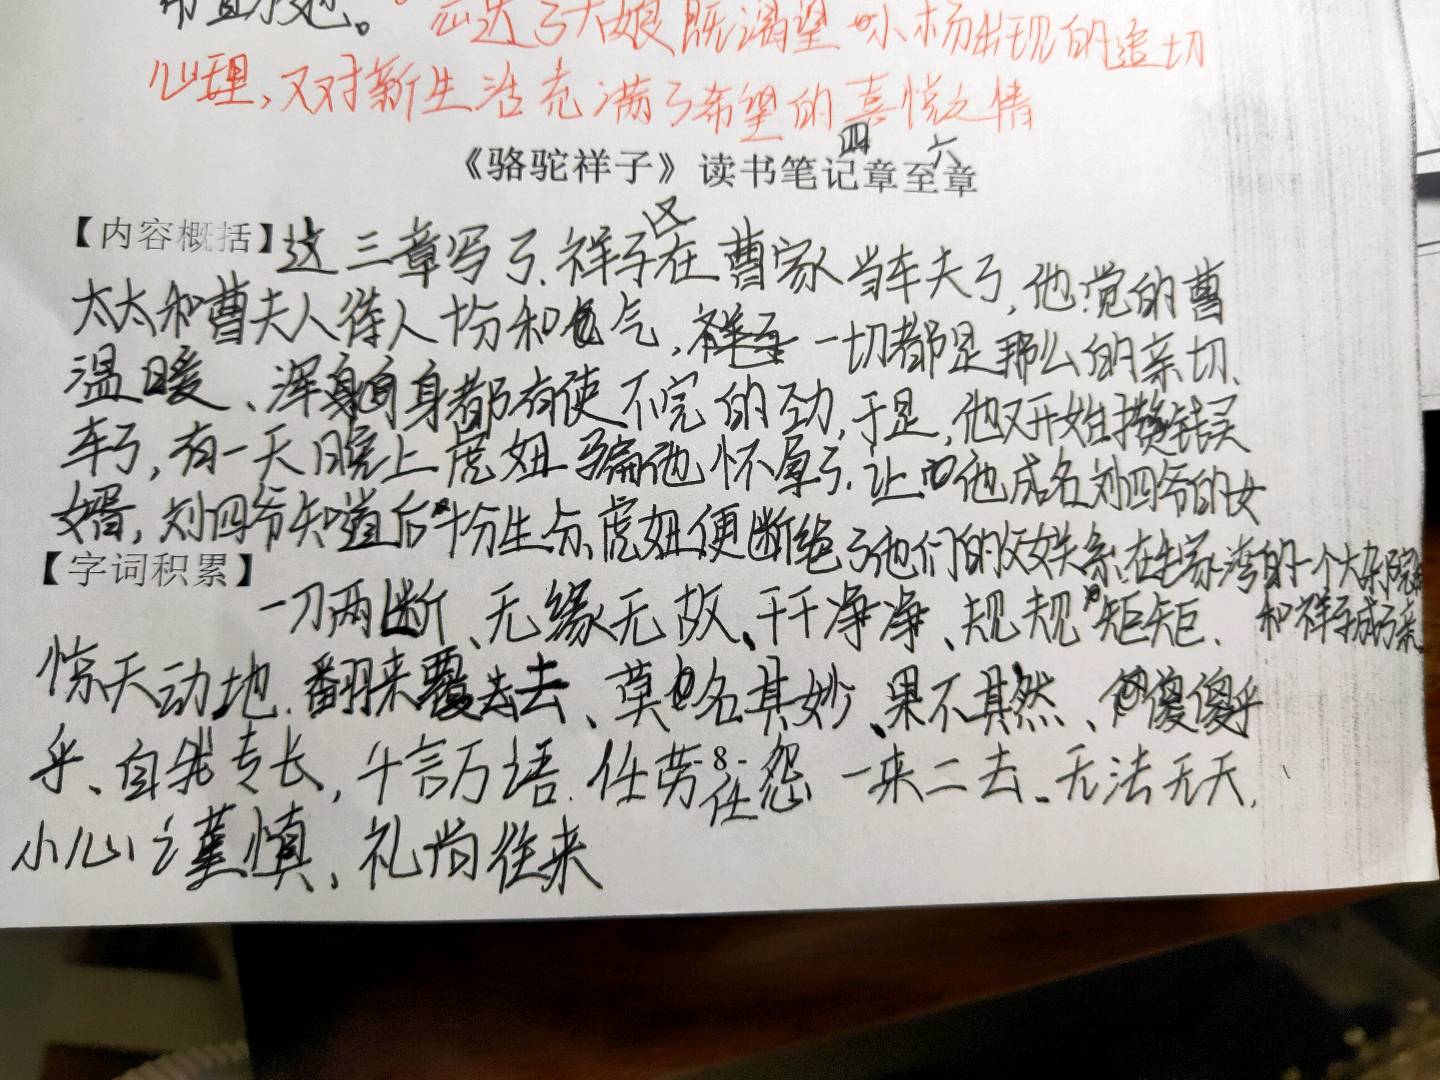 达了大娘既渴望小杨出现的迫切
心理，又对新生活充满了希望的喜悦之情
四 六
《骆驼祥子》读书笔记章至章
【内容概括】这三章写了.祥子又在曹家当车夫了,他觉的曹
太太和曹夫人待人十分和气,一切都是那么的亲切、
温暖、浑身都有使不完的劲,于是,他又开始攒钱买
车了,有一天晚上虎妞骗他怀孕了.让他成名刘四爷的女
婿,刘四爷知道后十分生气、虎妞便断绝了他们的父女关系,在毛家湾的一个大杂院
和祥子成了亲
【字词积累】
一刀两断、无缘无故、干干净净、规规矩矩、
惊天动地、翻来覆去、莫名其妙、果不其然、傻傻乎
乎、自我专长,千言万语.任劳任怨 一来二去、无法无天,
- 8 -
小心谨慎、礼尚往来